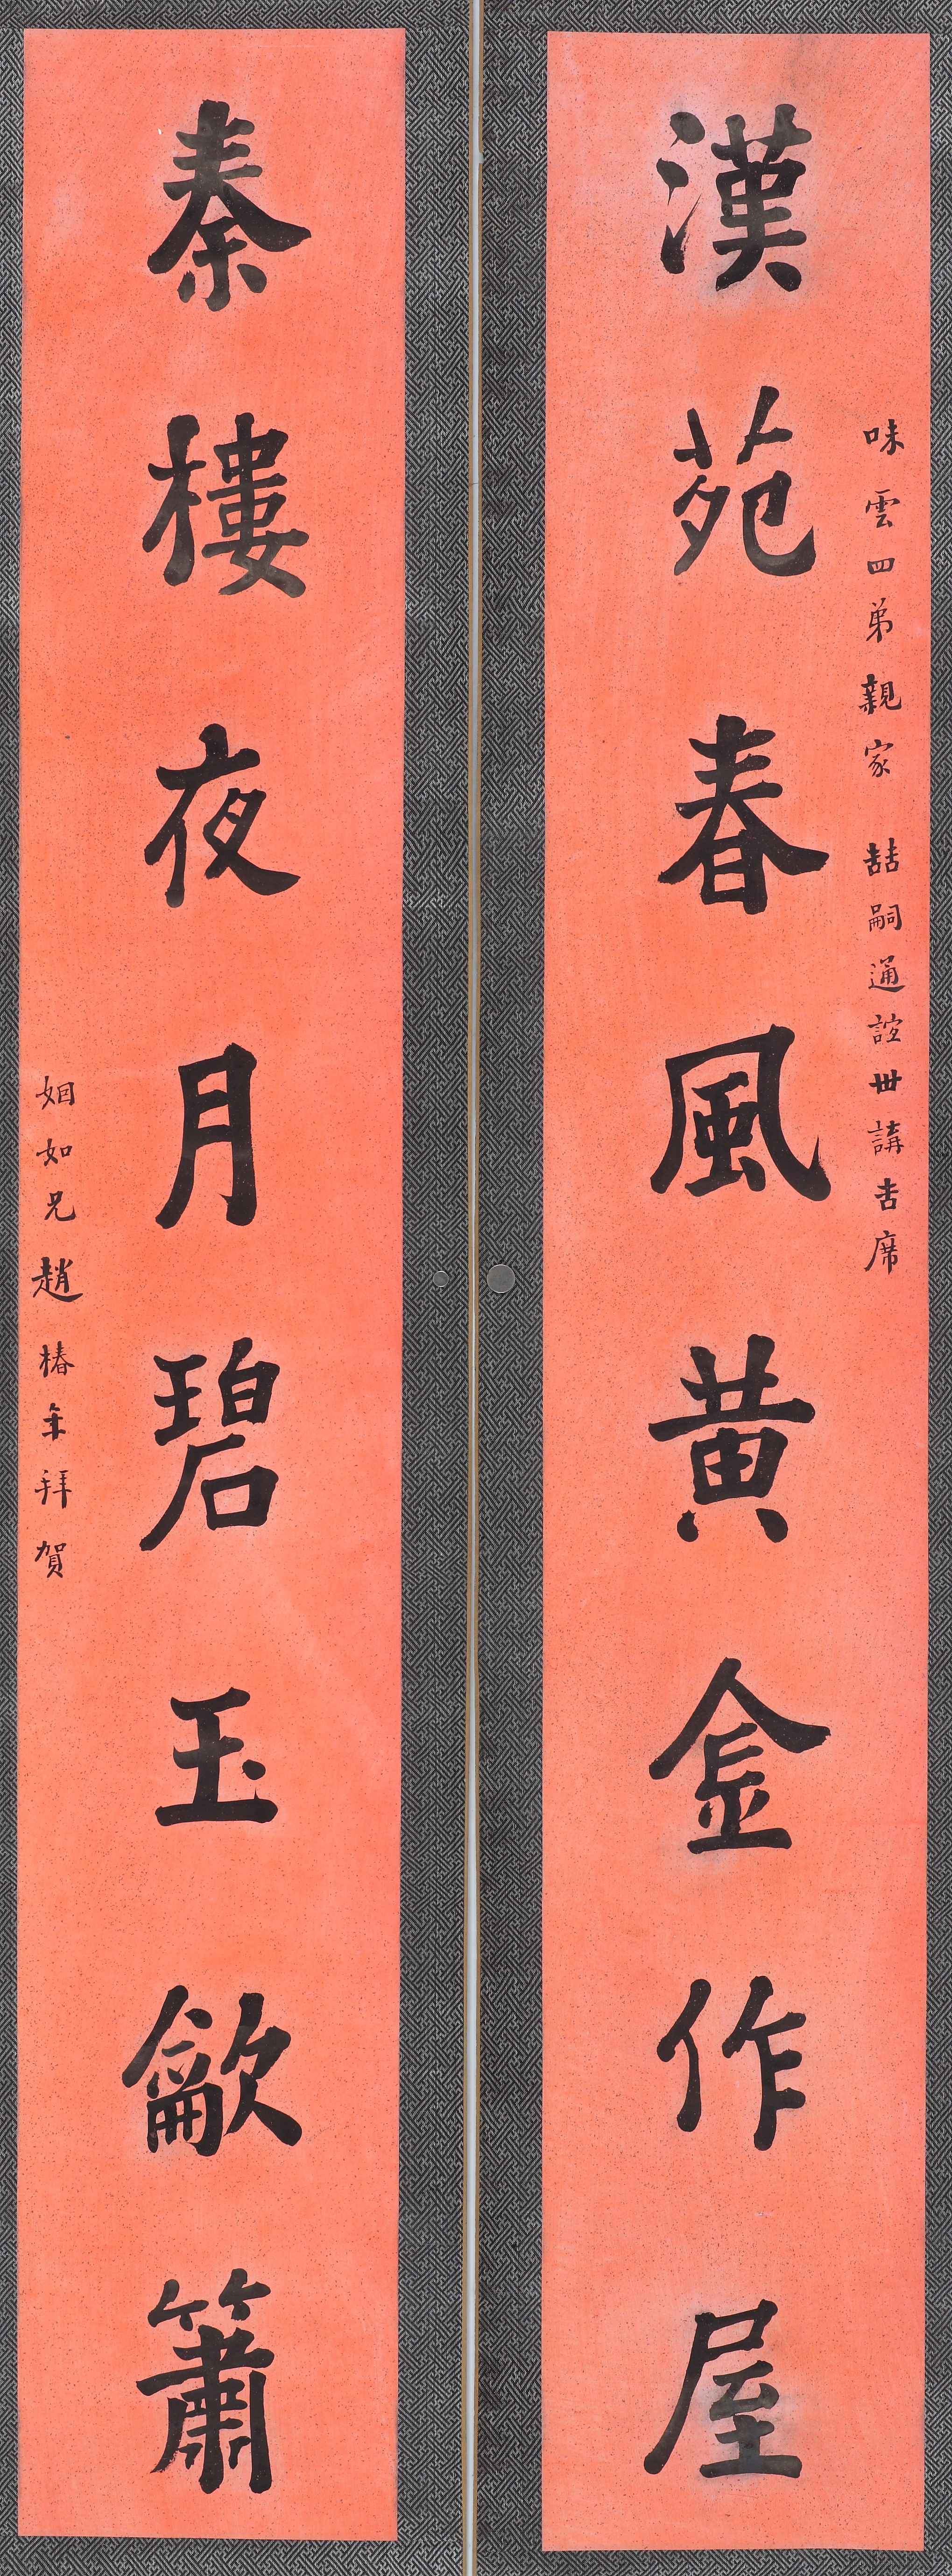 味雲四弟親家　喆嗣通誼世講吉席
漢苑春風黃金作屋
秦樓夜月碧玉龡簫
姻如兄趙椿年拜賀